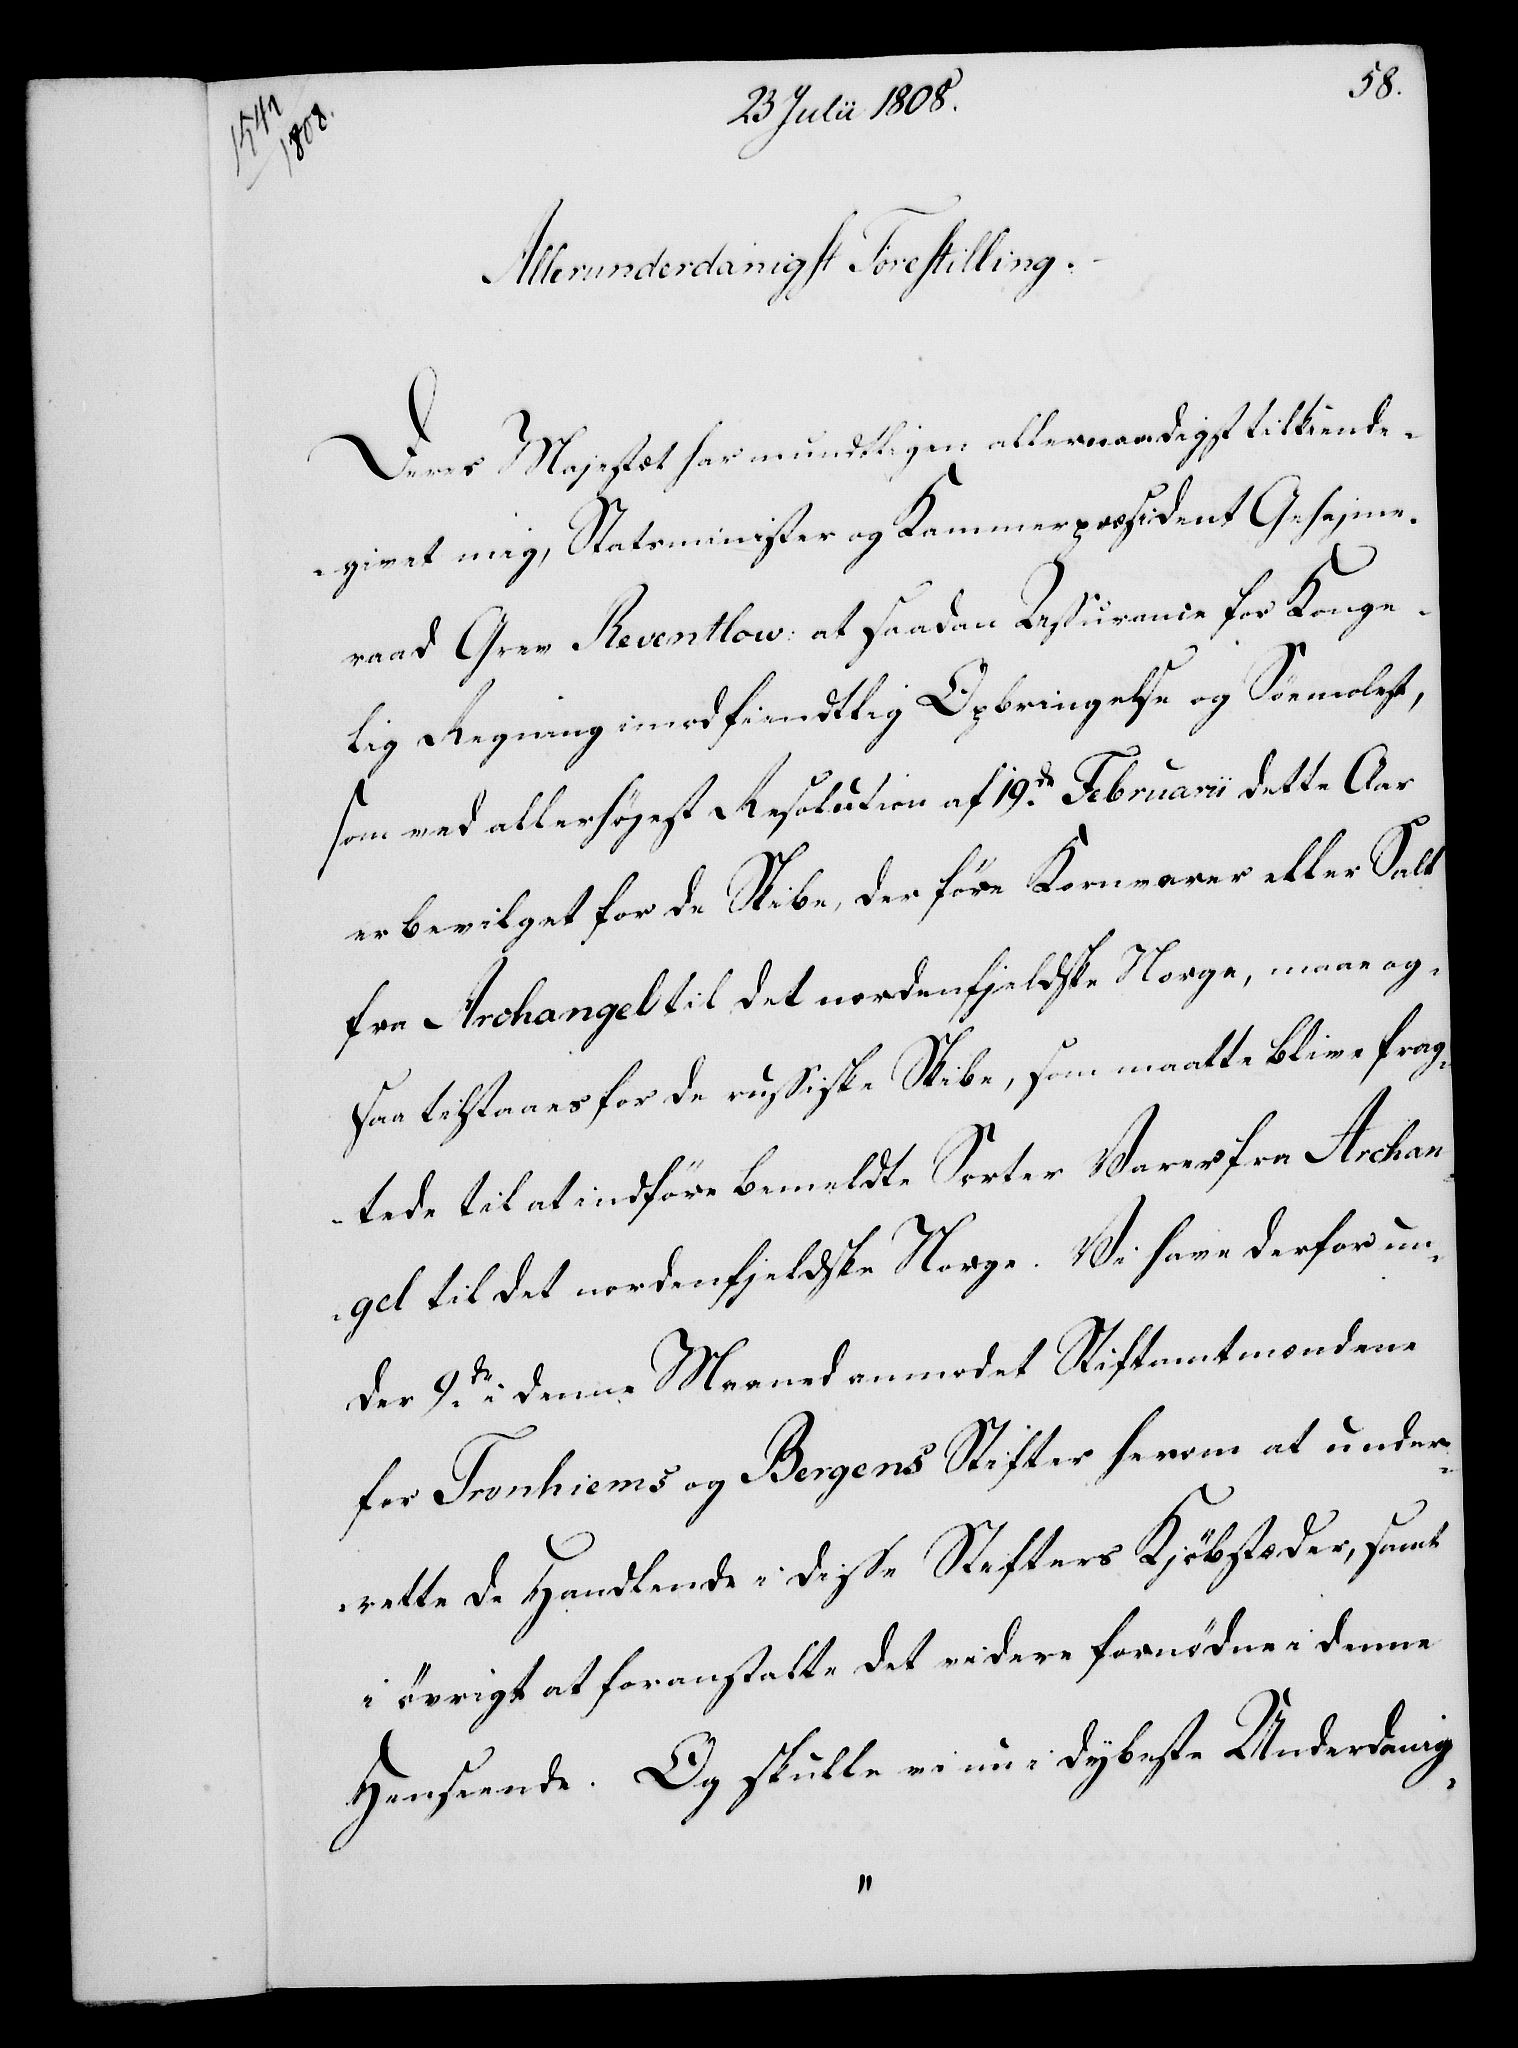 1542
1808.
23 Julii 1808.
58.
Allerunderdanigst Forestilling.
Deres Majestæt har mundtligen allernaadigst tilkiende-
-givet mig, Statsminister og Kammerpræsident Gehejme-
raad Grev Reventlow: at saadan Assurance for Konge-
lig Regning imod fiendtlig Opbringelse og Söemolest,
som ved allerhöjest Resolution af 19.de Februarii dette Aar
er bevilget for de Skibe, der före Kornvarer eller Salt
fra Archangel til det nordenfjeldske Norge, maae og-
saa tilstaaes for de russiske Skibe, som maatte blive frag-
-tede til at indföre bemeldte Sorter Varer fra Archan-
-gel til det nordenfjeldske Norge. Vi have derfor un-
der 9.de i denne Maaned anmodet Stiftamtmændene
for Tronhiems og Bergens Stifter herom at under-
-rette de Handlende i disse Stifters Kjöbstæder, samt
i övrigt at foranstalte det videre fornödne i denne
Henseende. Og skulle vi nu i dybeste Underdanig-
"